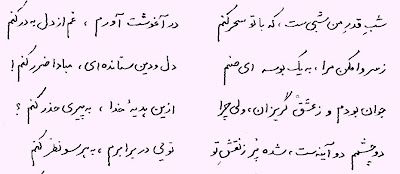 شبِ قدرِ من شبی ست ، که با تو سحر کنم در آغوشت آورم ، غم از دل به در کنم
ز سر وا مکن مرا ، به یک بوسه ای صنم دل و دین ستانده ای ، مبادا ضرر کنم !
جوان بودم و ز عشق گریزان ، ولی چرا ازین هدیهٔ خدا ، به پیری حذر کنم ؟
دو چشمم دو آینه ست ، شده پُر ز نقشِ تو تویی در برابرم ، به هر سو نظر کنم